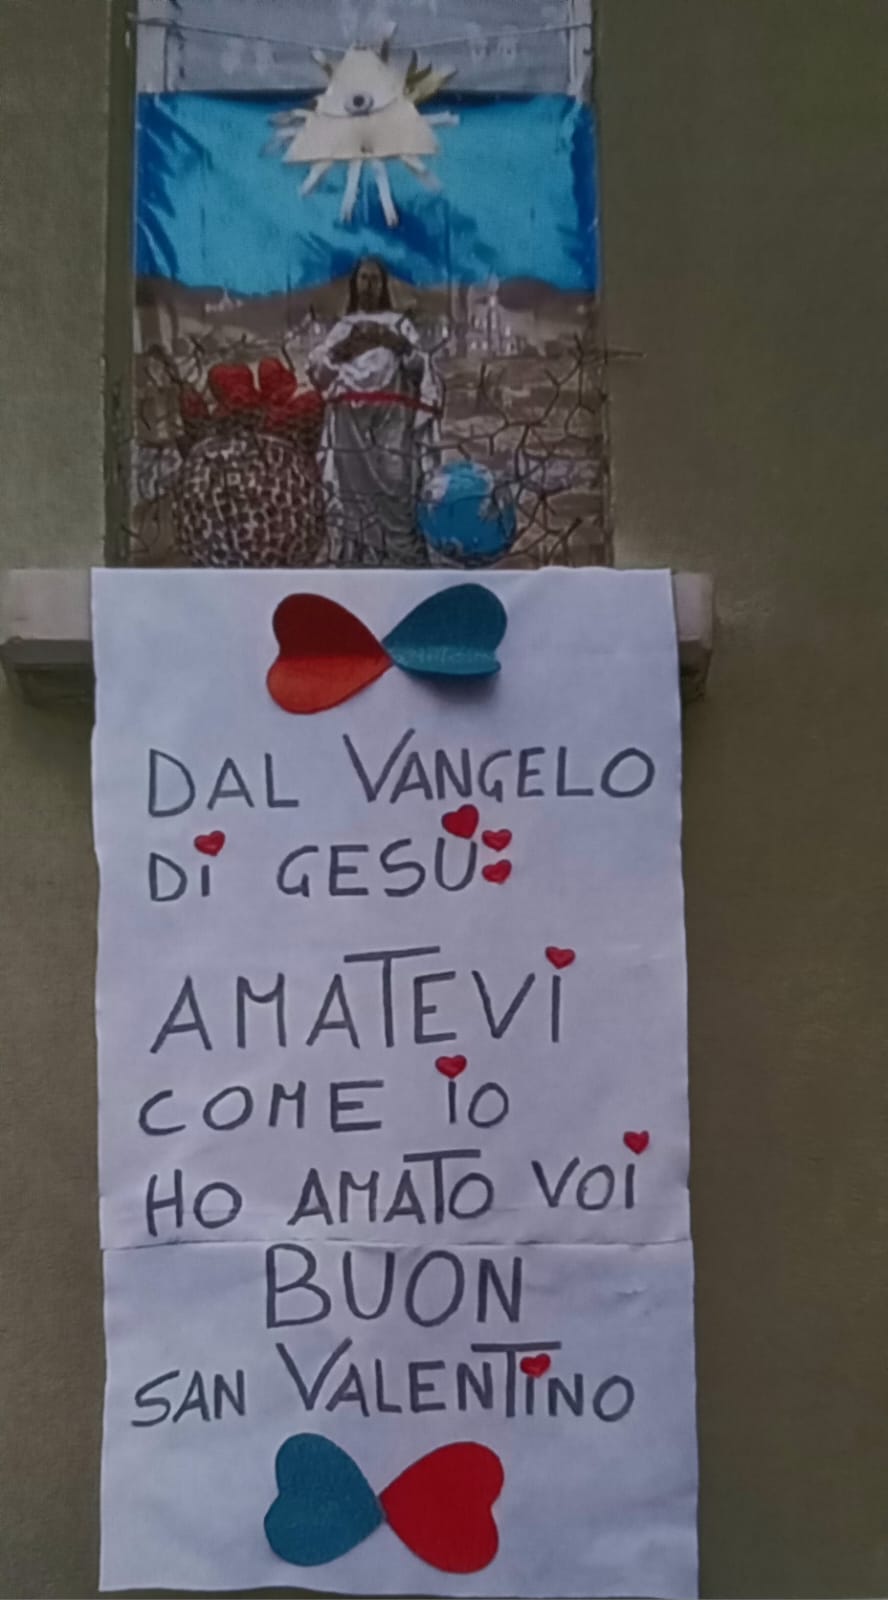 DAL VANGELO
Di GESÙ:
AMATEVi
COME iO
HO AMATO VOi
BUON
SAN VALENTiNO